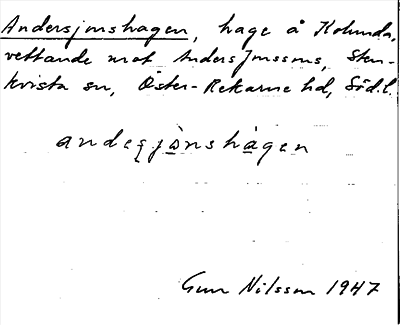 Andersjonshagen, hage å Kolunda,
vettande mot Anders Jonssons, Sten-
kvista sn, Öster-Rekarne hd, Södl.
andeʂjònshàgen
Gun Nilsson 1947